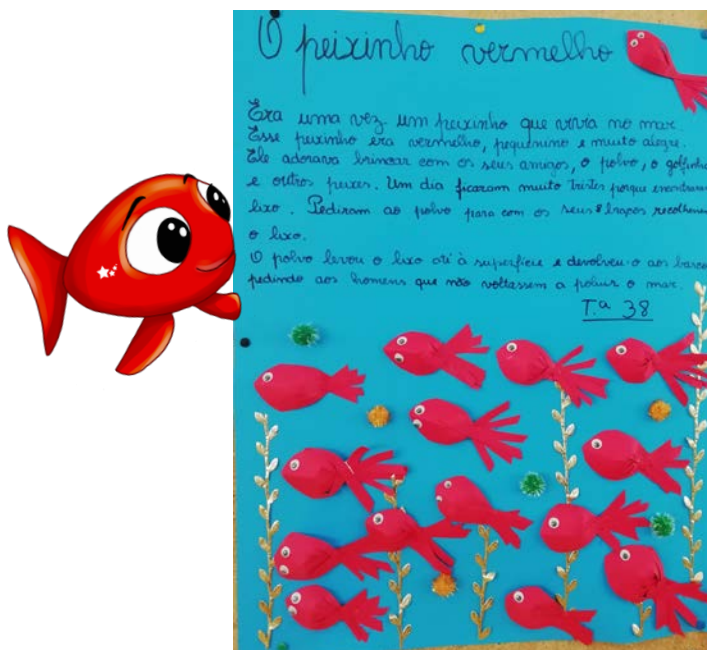 O peixinho vermelho
Era uma vez um peixinho que vivia no mar.
Esse peixinho era vermelho, pequenino e muito alegre.
Ele adorava brincar com os seus amigos, o polvo, o golfinho
e outros peixes. Um dia ficaram muito tristes porque encontram
lixo. Pediram ao polvo para com os seus 8 braços recolherem
o lixo.
O polvo levou o lixo até à superfície e devolveu-o aos barco
pedindo aos homens que não voltassem a poluir o mar.
T.ª 38